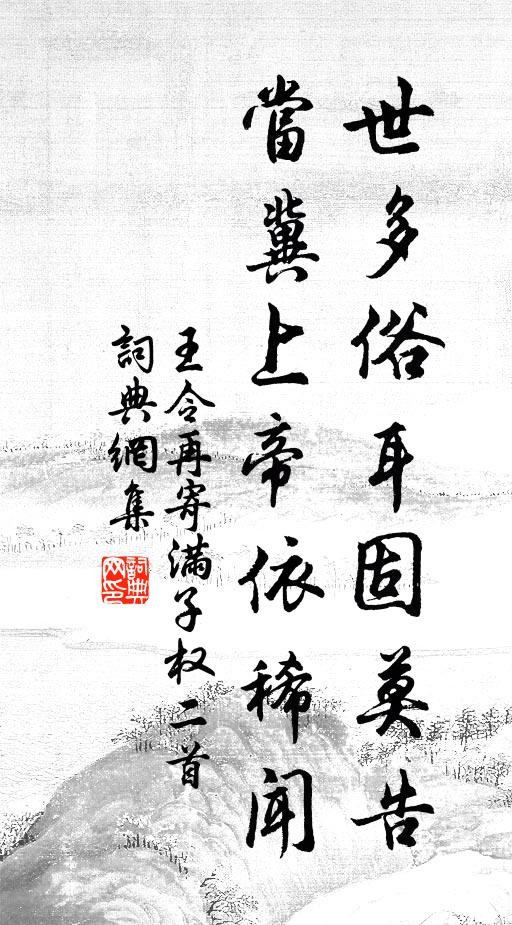 世多俗耳固莫告
當冀上帝依稀聞
王令再寄滿子权二首
詞典網集
詞典網印